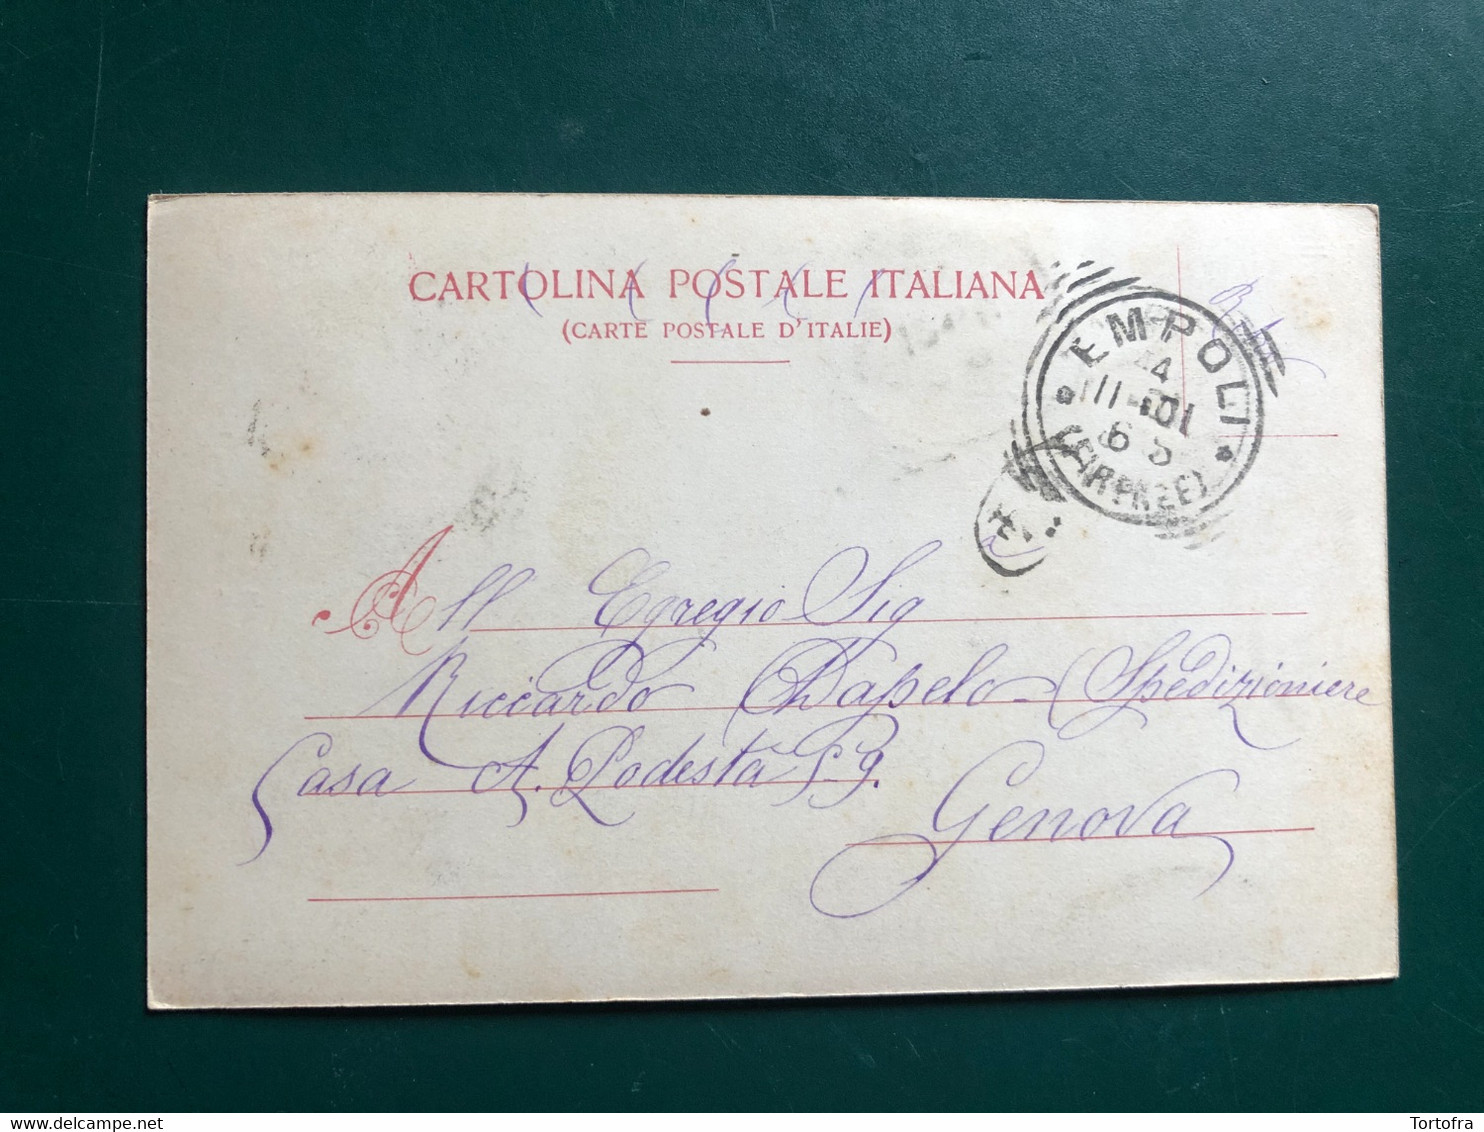 CARTOLINA POSTALE ITALIANA
(CARTE POSTALE D'ITALIE)
EMPOLI
(FIRENZE)
All Egregio Sig
Riccardo Dapelo (Spedizioniere
Casa A. Podestà
Genova
Tortofra